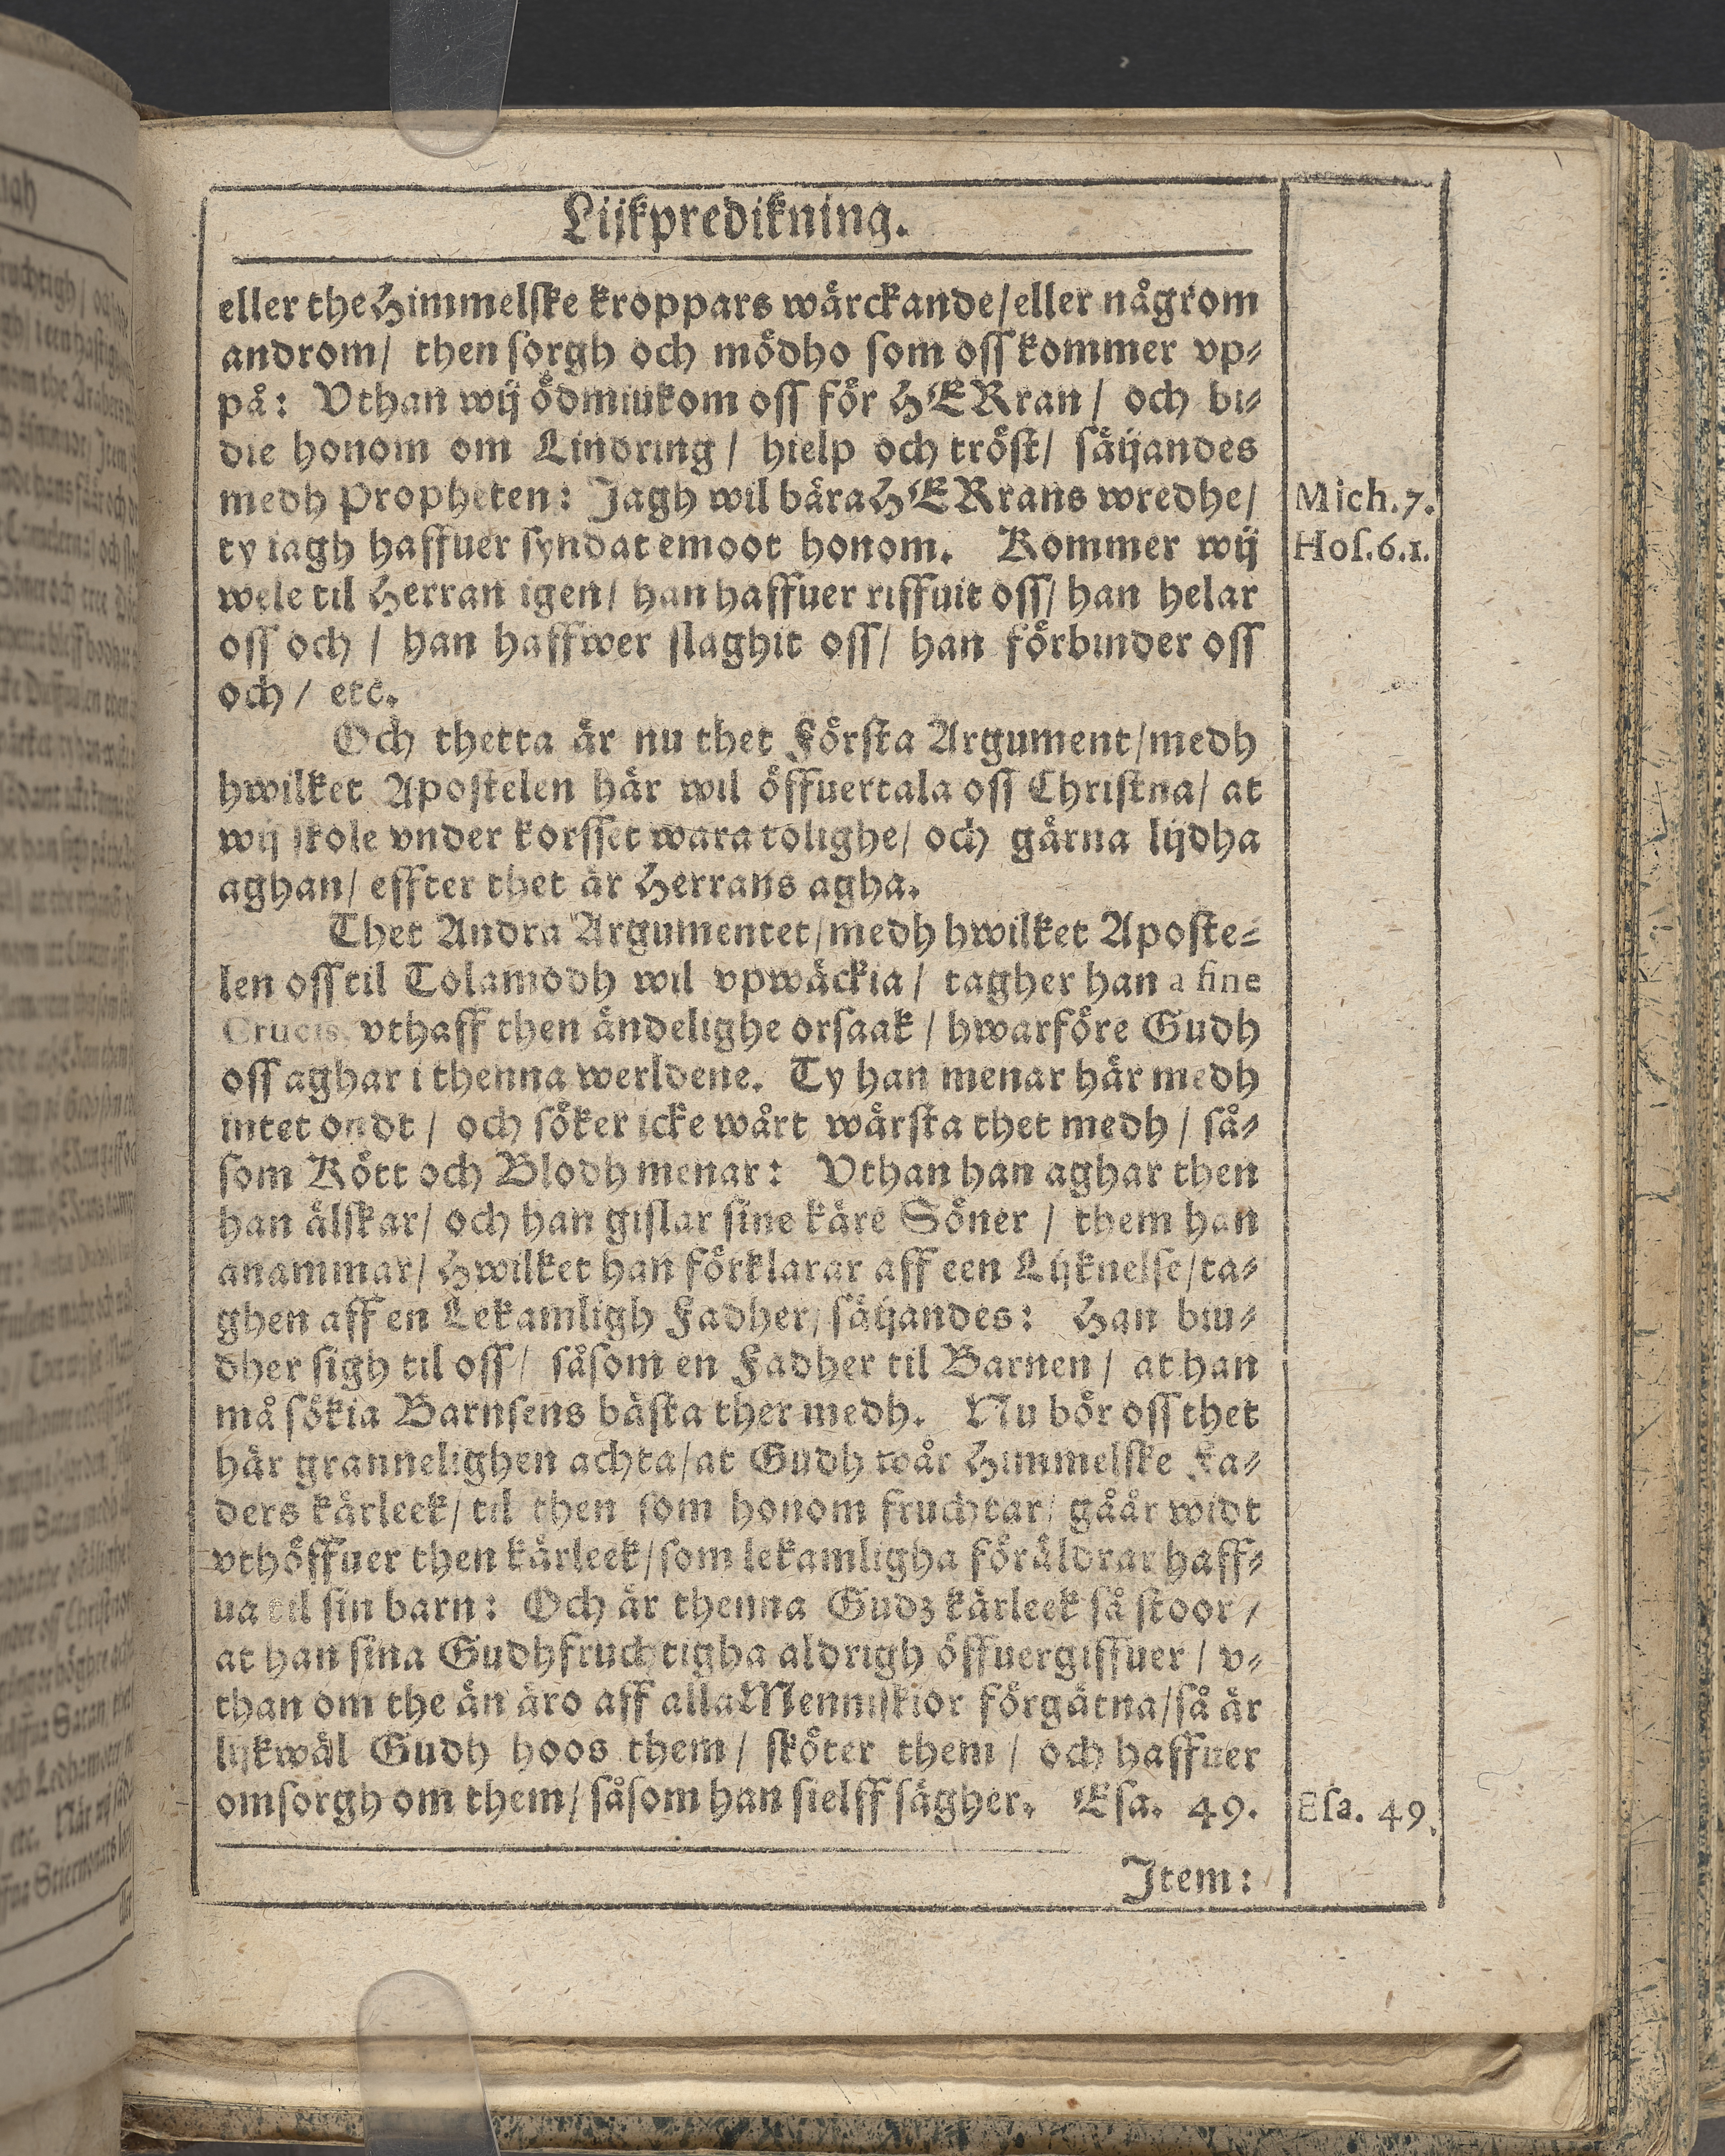 Lijkpredikning.
eller the Himmelske kroppars wärckande/ eller någrom
androm/ then sorgh och mödho som oss kommer vp-
på: Vthan wij ödmiukom oss för HERran/ och bi-
die honom om Lindring/ hielp och tröst/ säijandes
medh Propheten: Jagh wil bära HERrans wredhe/
Mich. 7.
ty iagh haffuer syndat emoot honom. Kommer wij
Hos. 6.1.
wele til Herran igen/ han haffuer riffuit oss/ han helar
oss och / han haffwer slaghit oss/ han förbinder oss
och/ etc.
Och thetta är nu thet Första Argument/ medh
hwilket Apostelen här wil öffuertala oss Christna/ at
wij skole vnder korsset wara tolighe/ och gärna lijdha
aghan/ effter thet är Herrans agha.
Thet Andra Argumentet/ medh hwilket Aposte-
len oss til Tolamodh wil vpwäckia/ tagher han a fine
Crucis, vthaff then ändelighe orsaak / hwarföre Gudh
oss aghar i thenna werldene. Ty han menar här medh
intet ondt / och söker icke wårt wärsta thet medh / så-
som Kött och Blodh menar: Vthan han aghar then
han älskar/ och han gislar sine käre Söner / them han
anammar/ Hwilket han förklarar aff een Lijknelse/ ta-
ghen aff en Lekamligh Fadher/ säijandes: Han biu-
dher sigh til oss/ såsom en Fadher til Barnen / at han
må sökia Barnsens bästa ther medh. Nu bör oss thet
här grannelighen achta/ at Gudh wår Himmelske Fa-
ders kärleek/ til then som honom fruchtar/ gåår widt
vthöffuer then kärleek/ som lekamligha föräldrar haff-
ua til sin barn: Och är thenna Gudz kärleek så stoor/
at han sina Gudhfruchtigha aldrigh öffuergiffuer / v-
than om the än äro aff alla Menniskior förgätna/ så är
lijkwäl Gudh hoos them/ sköter them / och haffuer
omsorgh om them/ såsom han sielff sägher. Esa. 49.
Esa. 49.
Item: